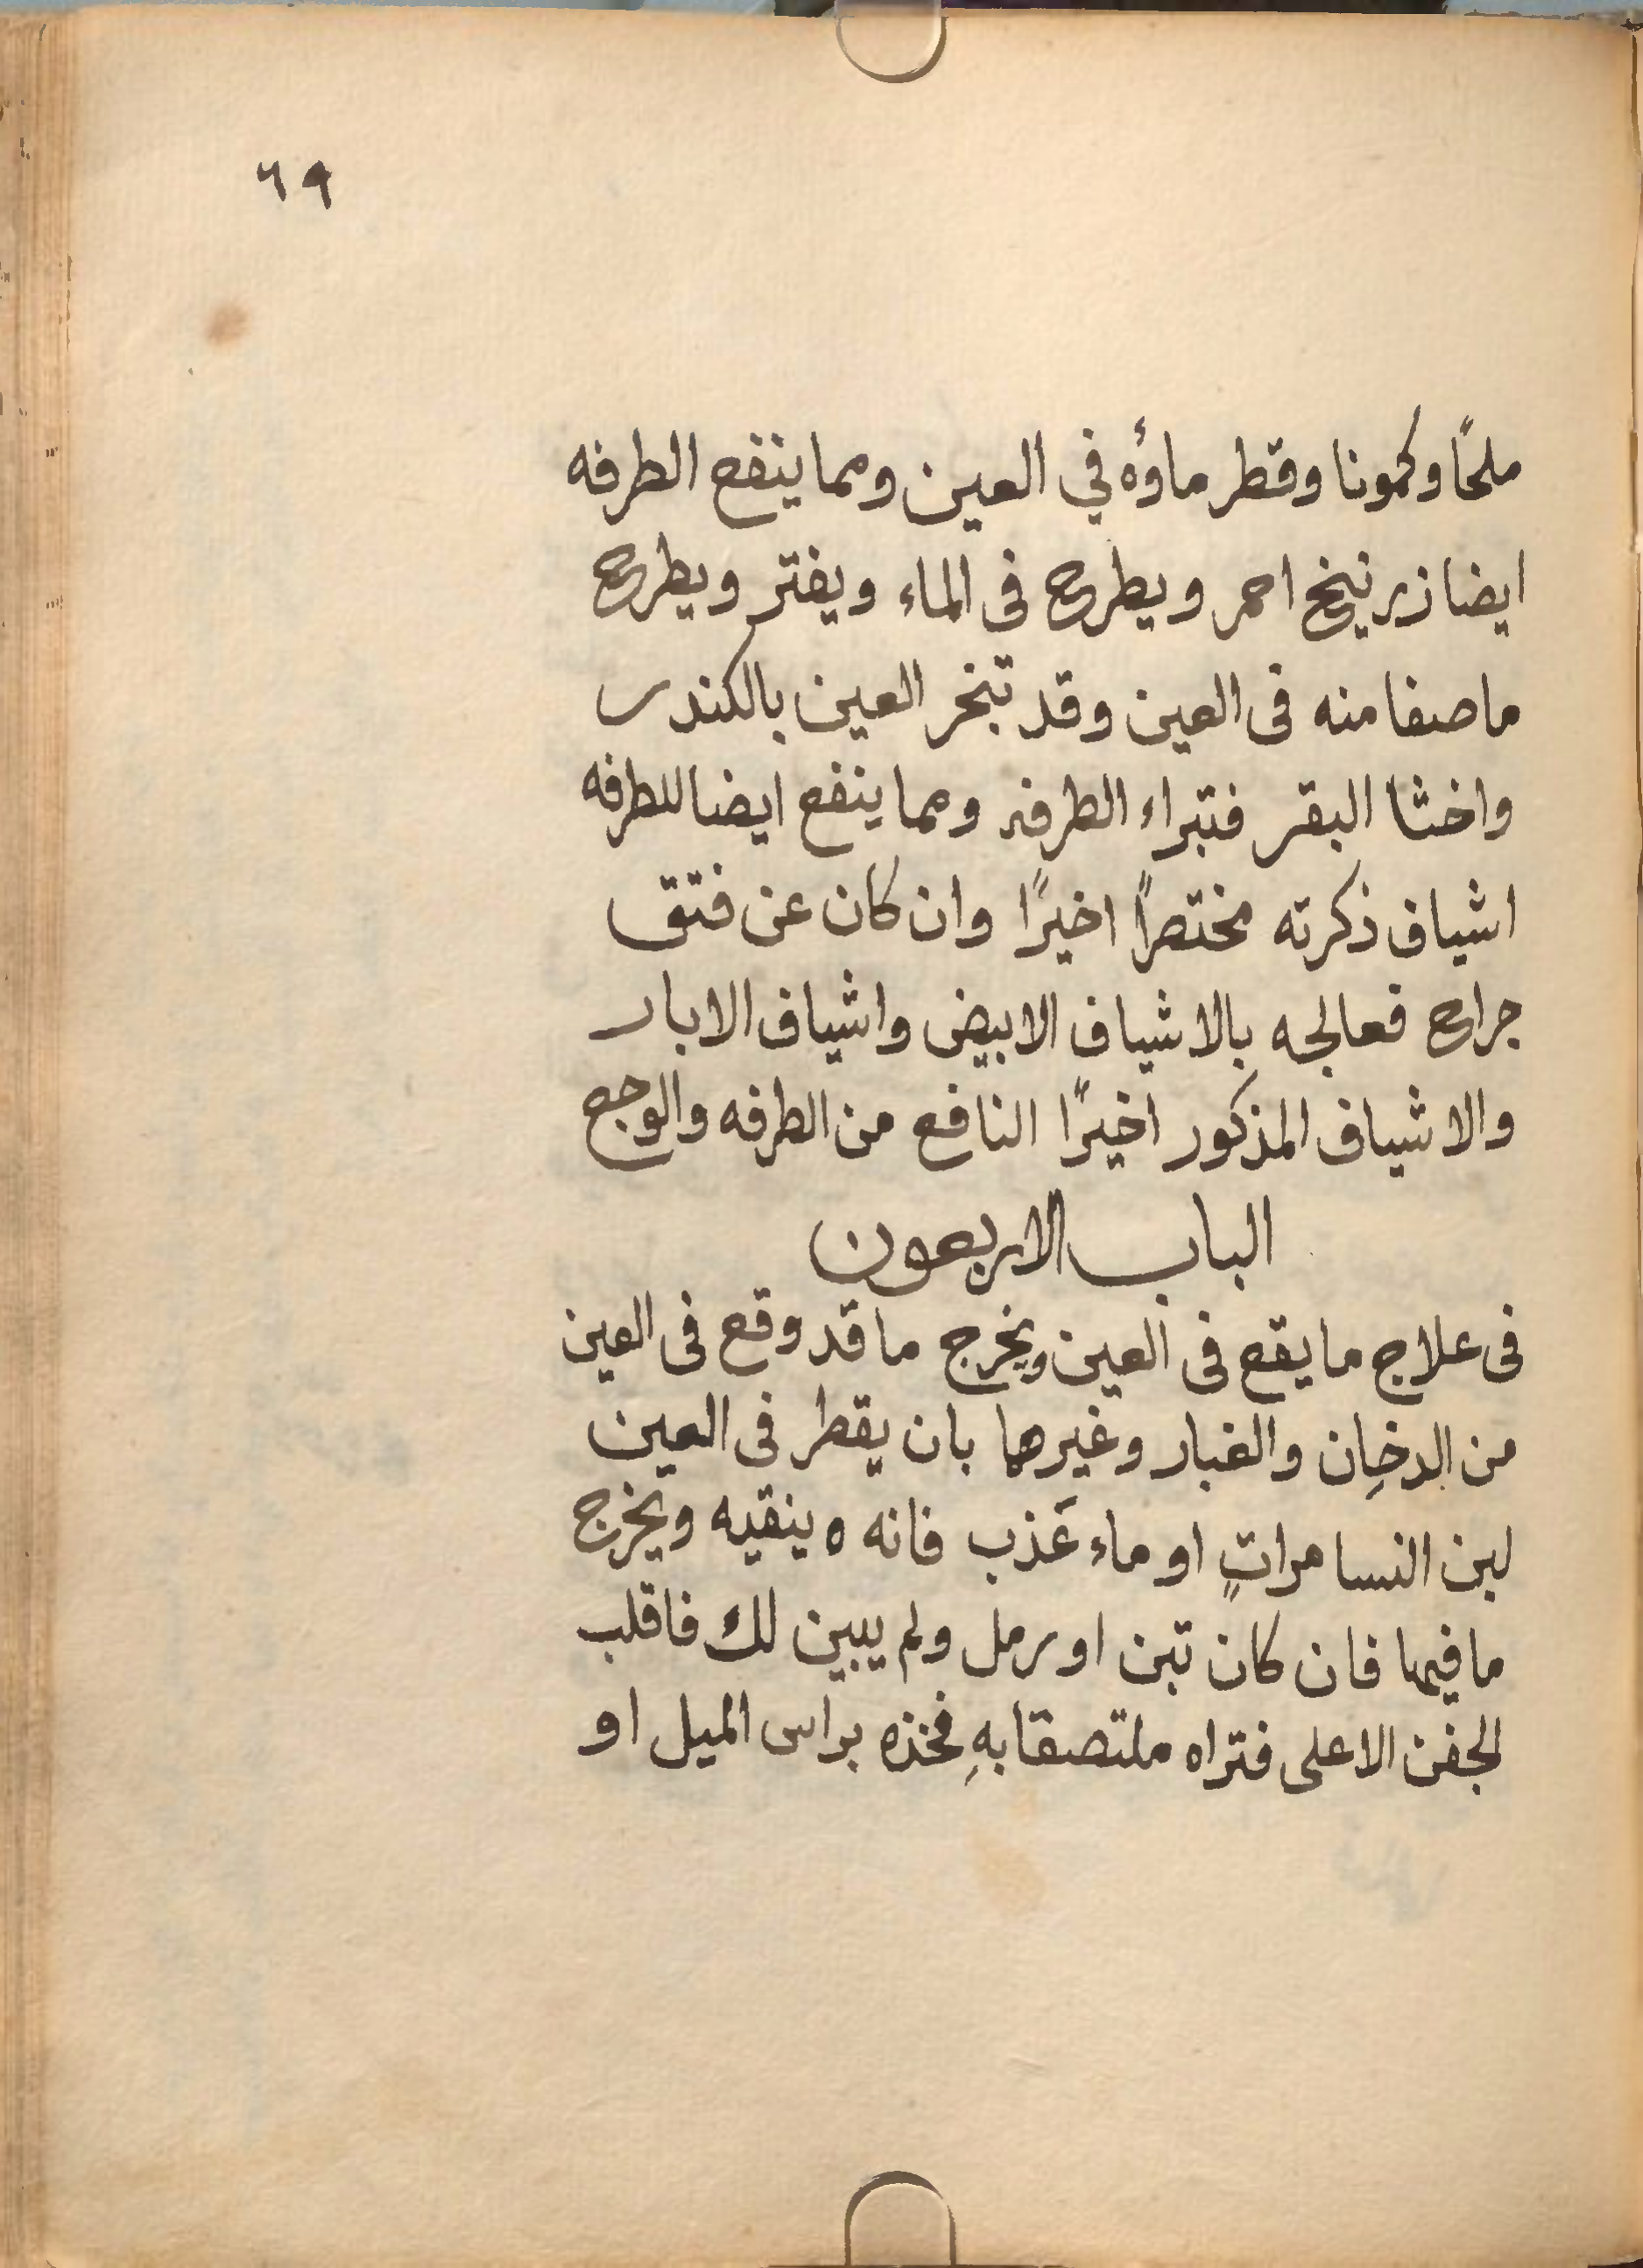 ٦٩
ملحًا وكمونا وقطر ماؤه في العين ومما ينفع الطرفه
ايضا زرنيخ احمر ويطرح فى الماء ويفتر ويطرح
ما صفا منه فى العين وقد تبخر العين بالكندر
واخثا البقر فتبراء الطرفه ومما ينفع ايضا للطرفه
اشياف ذكرته مختصرًا اخيرًا وان كان عن فتق
جراح فعالجه بالاشياف الابيض واشياف الابار
والاشياف المذكور اخيرًا النافع من الطرفه والوجع
الباب الاربعون
فى علاج ما يقع فى العين ويخرج ما قد وقع فى العين
من الدخان والغبار وغيرهما بان يقطر فى العين
لبن النسا مراتٍ او ماء عَذب فانه ه ينقيه ويخرج
ما فيها فان كان تبن او رمل ولم يبين لك فاقلب
الجفن الاعلى فتراه ملتصقا بهِ فخذه براس الميل او